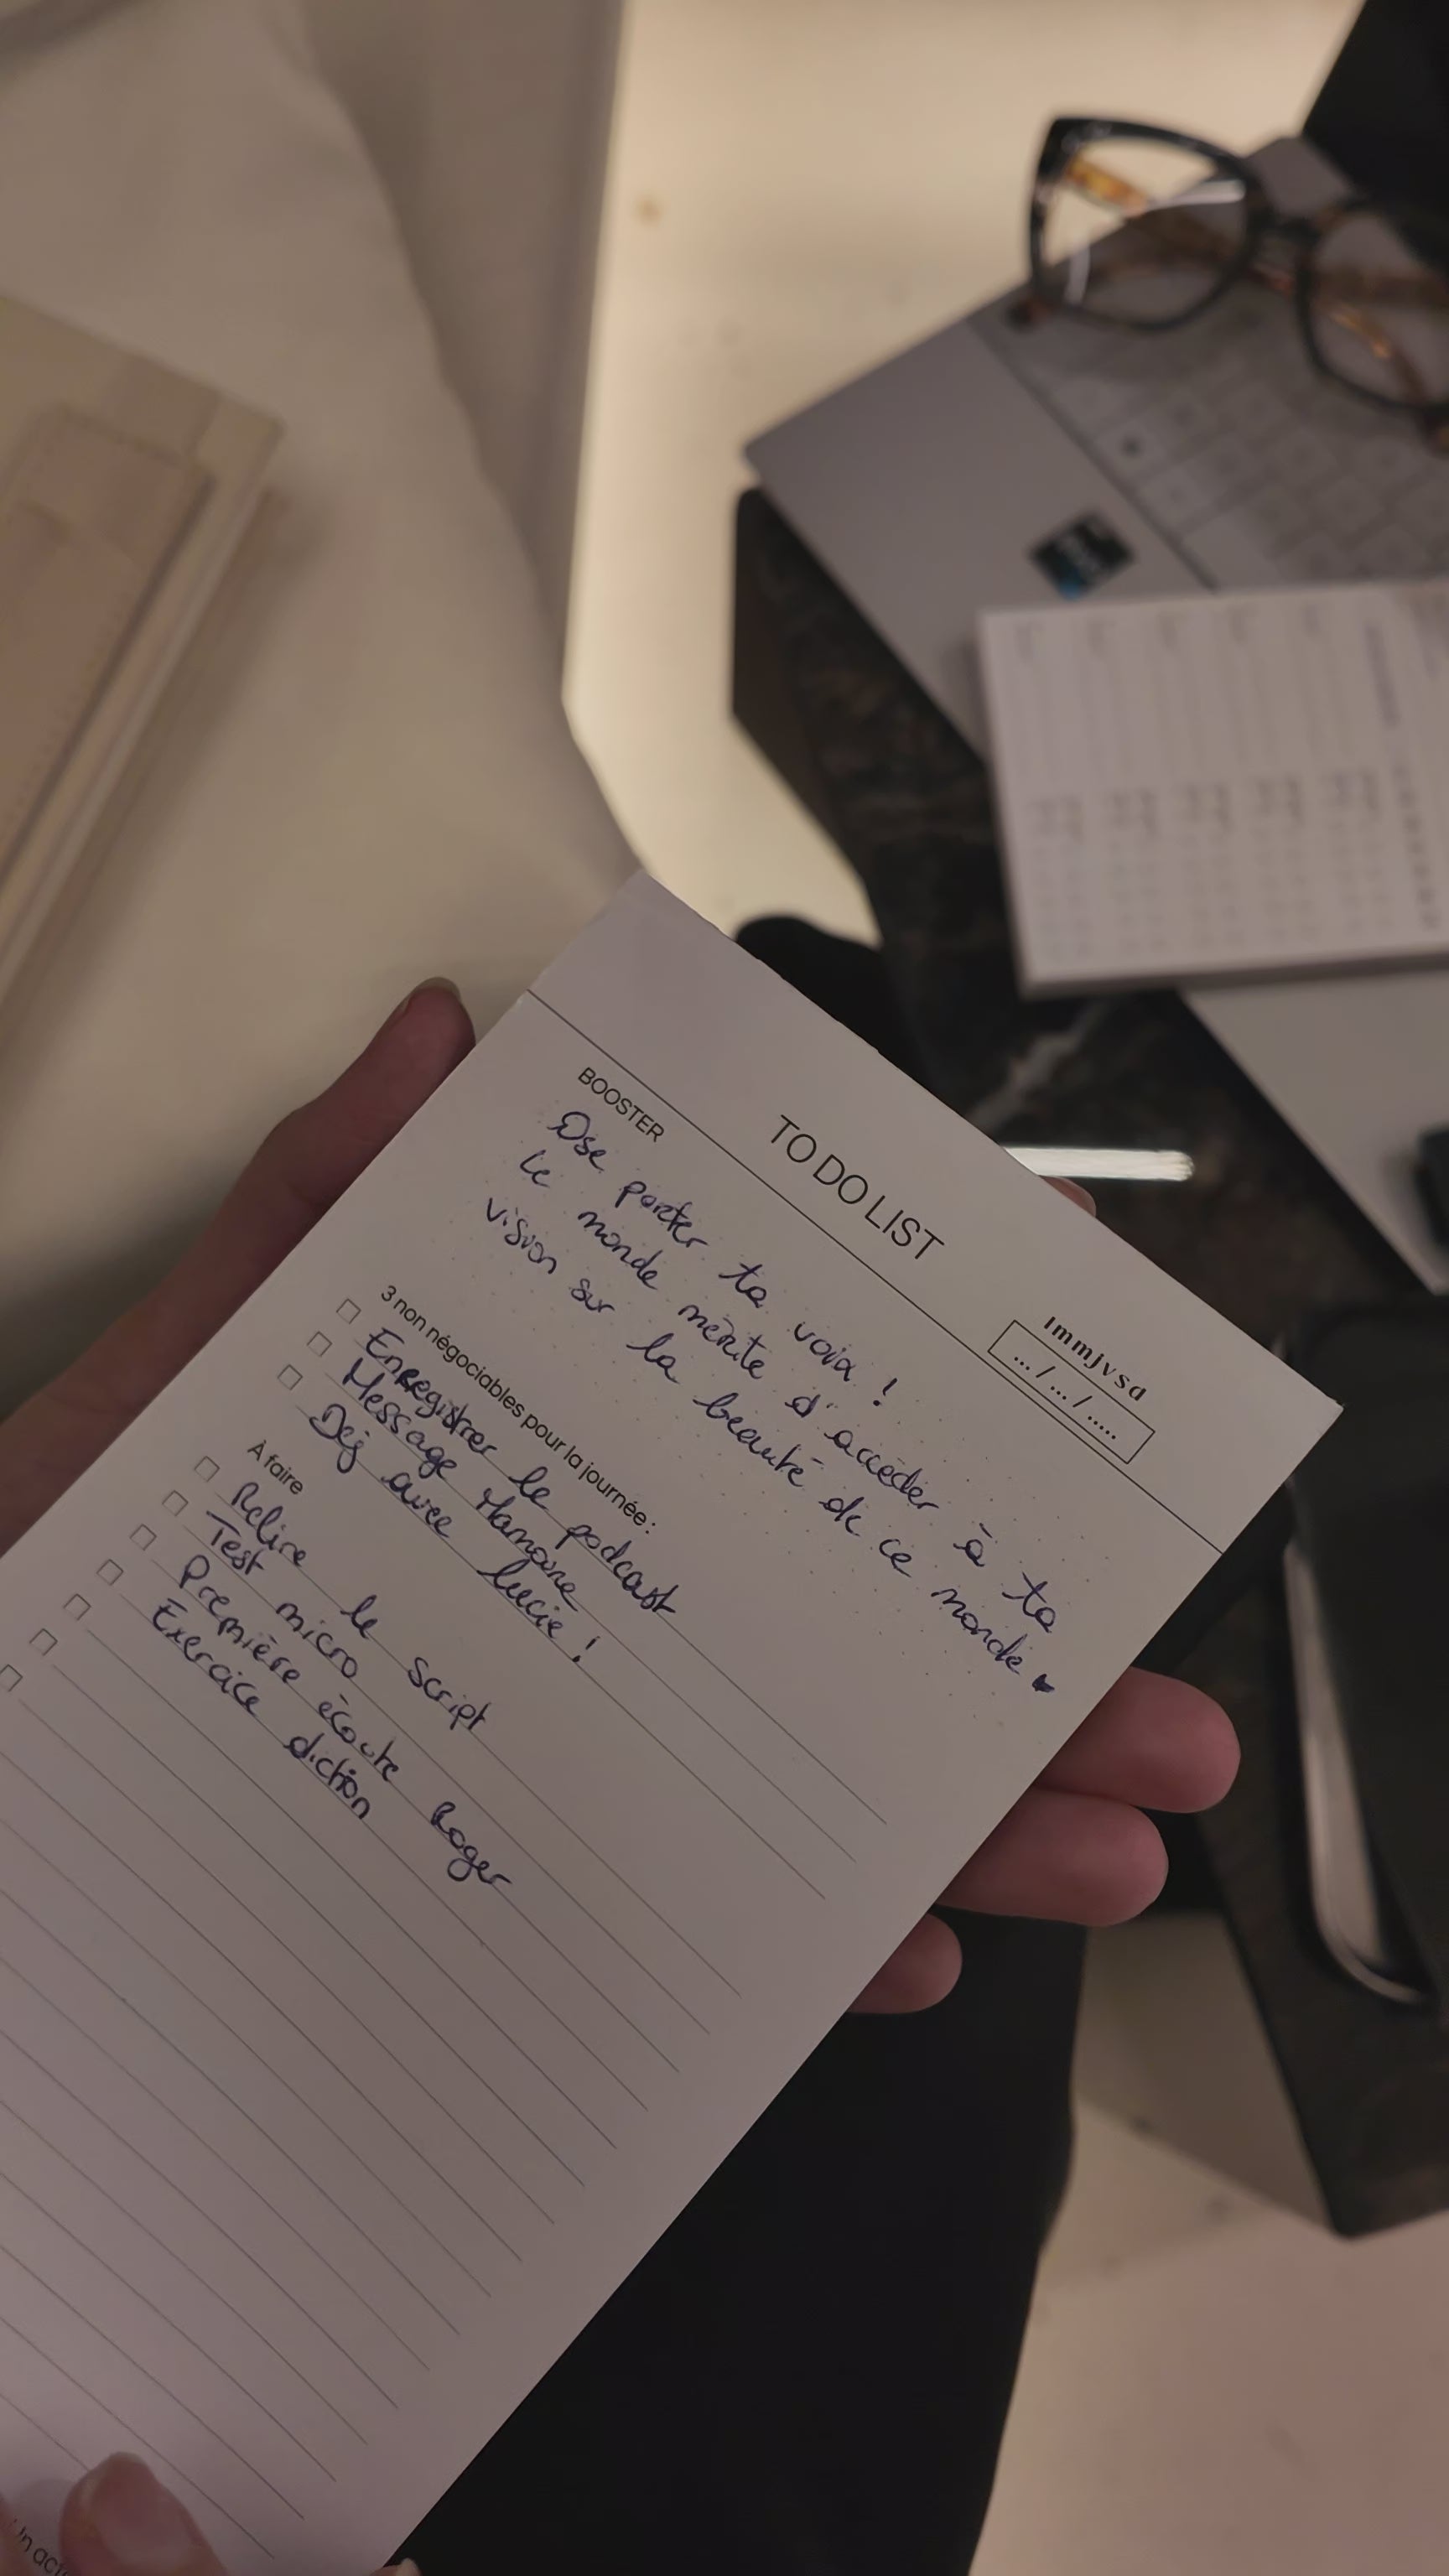 TO DO LIST
lmmjvsd
... / ... / .....
BOOSTER
Ose porter ta voix !
Le monde mérite d'accéder à ta
vision sur la beauté de ce monde
3 non négociables pour la journée :
Enregistrer le podcast
Message
Dej avec Lucie !
À faire
Relire le script
Test micro
Première écoute Roger
Exercice diction
Un act